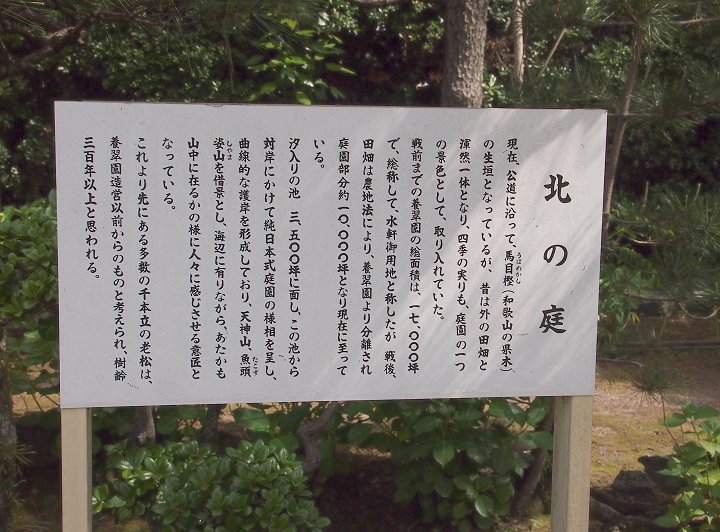 北の庭
現在、公道に沿って、馬目樫（和歌山の県木）
うばめがし
の生垣となっているが、昔は外の田畑と
渾然一体となり、四季の実りも、庭園の一つ
の景色として、取り入れていた。
戦前までの養翠園の総面積は、一七、〇〇〇坪
で、総称して、水軒御用地と称したが、戦後、
田畑は農地法により、養翠園より分離され
庭園部分約一〇、〇〇〇坪となり現在に至って
いる。
汐入りの池　三、五〇〇坪に面し、この池から
対岸にかけて純日本式庭園の様相を呈し、
曲線的な護岸を形成しており、天神山、魚頭
たこず
姿山を借景とし、海辺に有りながら、あたかも
しやま
山中に在るかの様に人々に感じさせる意匠と
なっている。
これより先にある多数の千本立の老松は、
養翠園造営以前からのものと考えられ、樹齢
三百年以上と思われる。